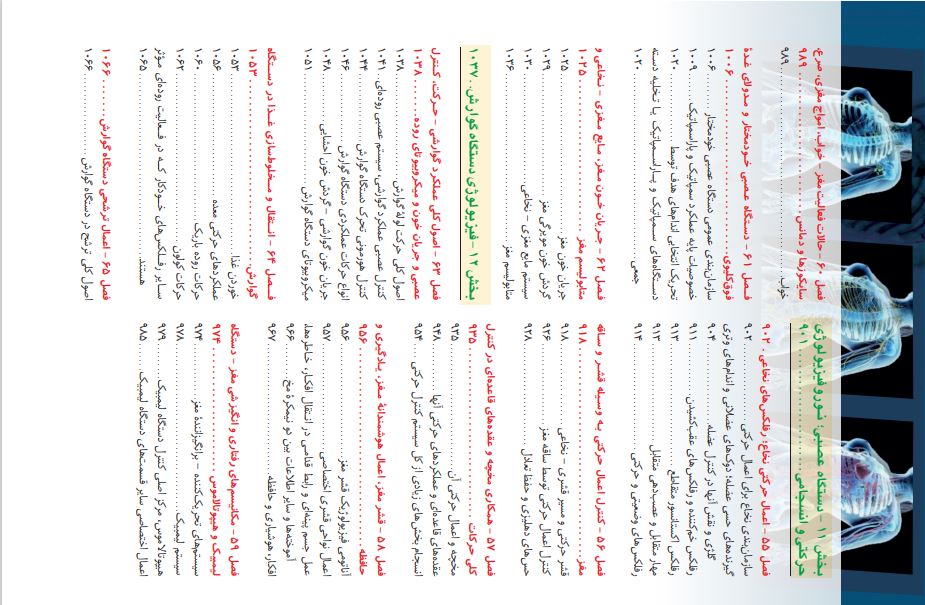 بخش ۱۱ – دستگاه عصبی: نوروفیزیولوژی
حرکتی و انسجامی ........ ۹۰۱
فصل ۵۵ – اعمال حرکتی نخاع؛ رفلکس‌های نخاعی . ۹۰۲
سازمان‌بندی نخاع برای اعمال حرکتی ........ ۹۰۲
گیرنده‌های حسی عضله: دوک‌های عضلانی و اندام‌های وتری
گلژی و نقش آنها در کنترل عضله ........ ۹۰۴
رفلکس خم‌کننده و رفلکس‌های عقب‌کشیدن ........ ۹۱۱
رفلکس اکستانسور متقاطع ........ ۹۱۳
مهار متقابل و عصب‌دهی متقابل ........ ۹۱۳
رفلکس‌های وضعیتی و حرکتی ........ ۹۱۴
فصل ۵۶ – کنترل اعمال حرکتی به وسیله قشر و ساقه
مغز ........ ۹۱۸
قشر حرکتی و مسیر قشری – نخاعی ........ ۹۱۸
کنترل اعمال حرکتی توسط ساقه مغز ........ ۹۲۶
حس‌های دهلیزی و حفظ تعادل ........ ۹۲۸
فصل ۵۷ – همکاری مخچه و عقده‌های قاعده‌ای در کنترل
کلی حرکات ........ ۹۳۵
مخچه و اعمال حرکتی آن ........ ۹۳۵
عقده‌های قاعده‌ای و عملکردهای حرکتی آنها ........ ۹۴۸
انسجام بخش‌های زیادی از کل سیستم کنترل حرکتی ........ ۹۵۴
فصل ۵۸ – قشر مغز، اعمال هوشمندانهٔ مغز، یادگیری و
حافظه ........ ۹۵۶
آناتومی فیزیولوژیک قشر مغز ........ ۹۵۶
اعمال نواحی قشری اختصاصی ........ ۹۵۷
عمل جسم پینه‌ای و رابط قدامی در انتقال افکار، خاطره‌ها،
آموخته‌ها و سایر اطلاعات بین دو نیمکرهٔ مخ ........ ۹۶۶
افکار، هوشیاری و حافظه ........ ۹۶۷
فصل ۵۹ – مکانیسم‌های رفتاری و انگیزشی مغز – دستگاه
لیمبیک و هیپوتالاموس ........ ۹۷۴
سیستم‌های تحریک‌کننده – برانگیزانندهٔ مغز ........ ۹۷۴
سیستم لیمبیک ........ ۹۷۸
هیپوتالاموس، مرکز اصلی کنترل دستگاه لیمبیک ........ ۹۷۹
اعمال اختصاصی سایر قسمت‌های دستگاه لیمبیک ........ ۹۸۵
فصل ۶۰ – حالات فعالیت مغز – خواب، امواج مغزی، صرع،
سایکوزها و دمانس ........ ۹۸۹
خواب ........ ۹۸۹
فصل ۶۱ – دستگاه عصبی خودمختار و مدولای غدهٔ
فوق‌کلیوی ........ ۱۰۰۶
سازمان‌بندی عمومی دستگاه عصبی خودمختار ........ ۱۰۰۶
خصوصیات پایه عملکرد سمپاتیک و پاراسمپاتیک ........ ۱۰۰۹
تحریک انتخابی اندام‌های هدف توسط ........ ۱۰۲۰
دستگاه‌های سمپاتیک و پاراسمپاتیک یا تخلیه دسته
جمعی ........ ۱۰۲۰
فصل ۶۲ – جریان خون مغز، مایع مغزی – نخاعی و
متابولیسم مغز ........ ۱۰۲۵
جریان خون مغز ........ ۱۰۲۵
گردش خون مویرگی مغز ........ ۱۰۲۹
سیستم مایع مغزی – نخاعی ........ ۱۰۳۰
متابولیسم مغز ........ ۱۰۳۶
بخش ۱۲ – فیزیولوژی دستگاه گوارش .. ۱۰۳۷
فصل ۶۳ – اصول کلی عملکرد گوارشی – حرکت، کنترل
عصبی و جریان خون و میکروبیوتای روده ........ ۱۰۳۸
اصول کلی حرکت لولهٔ گوارش ........ ۱۰۳۸
کنترل عصبی عملکرد گوارشی، سیستم عصبی روده‌ای . ۱۰۴۱
کنترل هورمونی تحرک دستگاه گوارش ........ ۱۰۴۴
انواع حرکات عملکردی دستگاه گوارش ........ ۱۰۴۶
جریان خون گوارشی – گردش خون احشایی ........ ۱۰۴۸
میکروبیوتای دستگاه گوارش ........ ۱۰۵۱
فصل ۶۴ – انتقال و مخلوط‌سازی غذا در دستگاه
گوارش ........ ۱۰۵۳
خوردن غذا ........ ۱۰۵۳
عملکردهای حرکتی معده ........ ۱۰۵۶
حرکات روده باریک ........ ۱۰۶۰
حرکات کولون ........ ۱۰۶۲
سایر رفلکس‌های خودکار که در فعالیت روده‌ای مؤثر
هستند ........ ۱۰۶۵
فصل ۶۵ – اعمال ترشحی دستگاه گوارش ........ ۱۰۶۶
اصول کلی ترشح در دستگاه گوارش ........ ۱۰۶۶